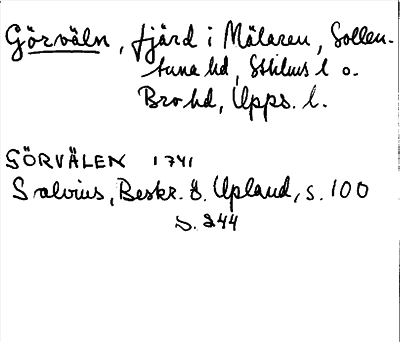 Görväln, fjärd i Mälaren, Sollen-
tuna hd, Sthlms l o.
Bro hd, Upps. l.
SÖRVÄLEN 1741
Salvius, Beskr. ö. Upland, s. 100
s. 244